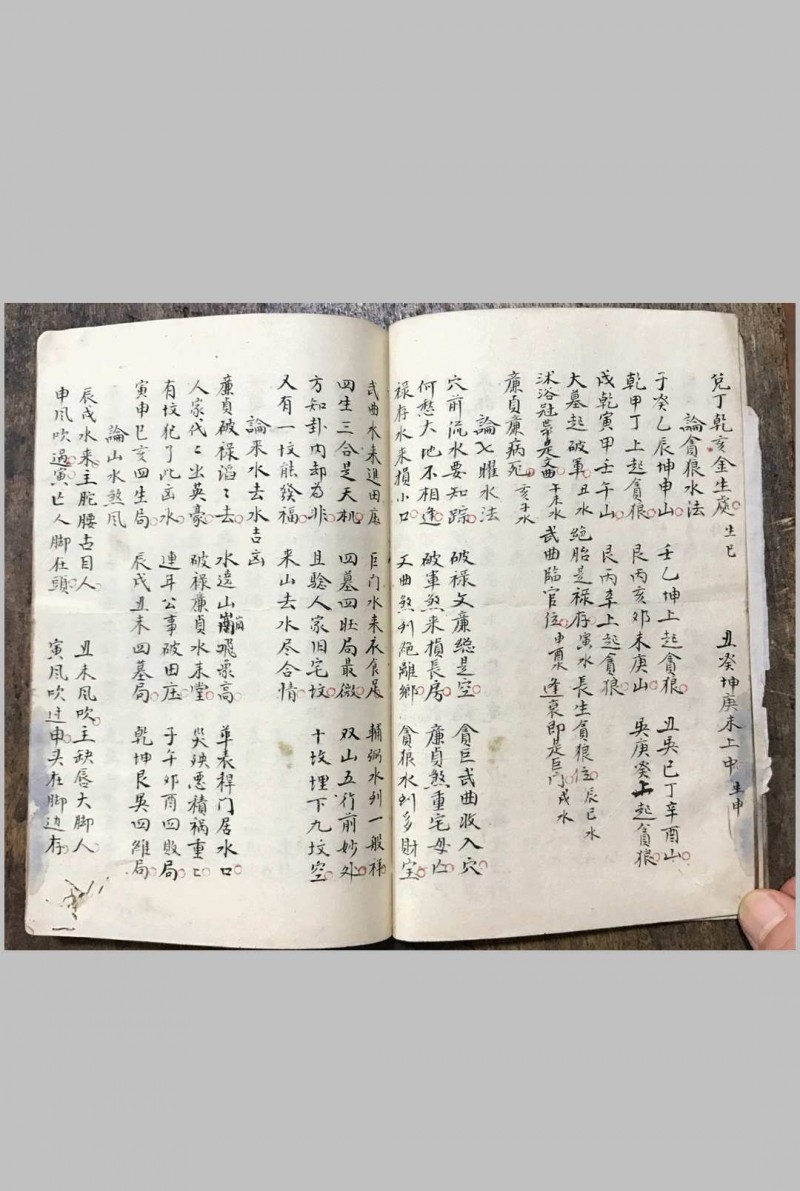 兌丁乾亥金生處 生巳 丑癸坤庚未上中生申
論貪狼水法
子癸乙辰坤申山 壬乙坤上起貪狼 丑吳巳丁辛酉山
乾甲丁上起貪狼 艮丙亥卯未庚山 吳庚癸上起貪狼
戌乾寅甲壬午山 艮丙辛上起貪狼
大墓起破軍 丑水 絶胎是禄存 寅水 長生貪狼位 辰巳水
沭浴冠帶是文曲 午未水 武曲臨官位 申酉水 逢衰即是巨门 戌水
廉貞廉病死 亥子水
論七曜水法
穴前流水要知踪 破禄文廉縂是空 貪巨武曲收入穴
何愁大地不相逢 破軍煞来損長房 廉貞煞重宅母凶
禄存水来損小口 文曲煞到跑離鄉 貪狼水到多財宝
武曲水来進田庄 巨门水来衣食足 輔弼水到一般祥
四生三合是天机 四墓四旺局最微 双山五行前妙外
方知卦内却為非 且驗人家旧宅坟 十坟埋下九坟空
又有一坟能發福 来山去水尽合情
論来水去水吉凶
廉貞破禄滔〻去 水遶山崗飛哀高 華表稈门居水口
人家代〻出英豪 破禄廉貞水来堂 災殃悪積禍重〻
有坟犯了此凶水 連年公事破田庄 子午卯酉四敗局
寅申巳亥四生局 辰戌丑未四墓局 乾坤艮吳四維局
論山水煞风
辰戌水来主駝腰 吉目人 丑未风吹主缺唇大脚人
申风吹過寅 亡人脚在頭 寅风吹过申头在脚边存